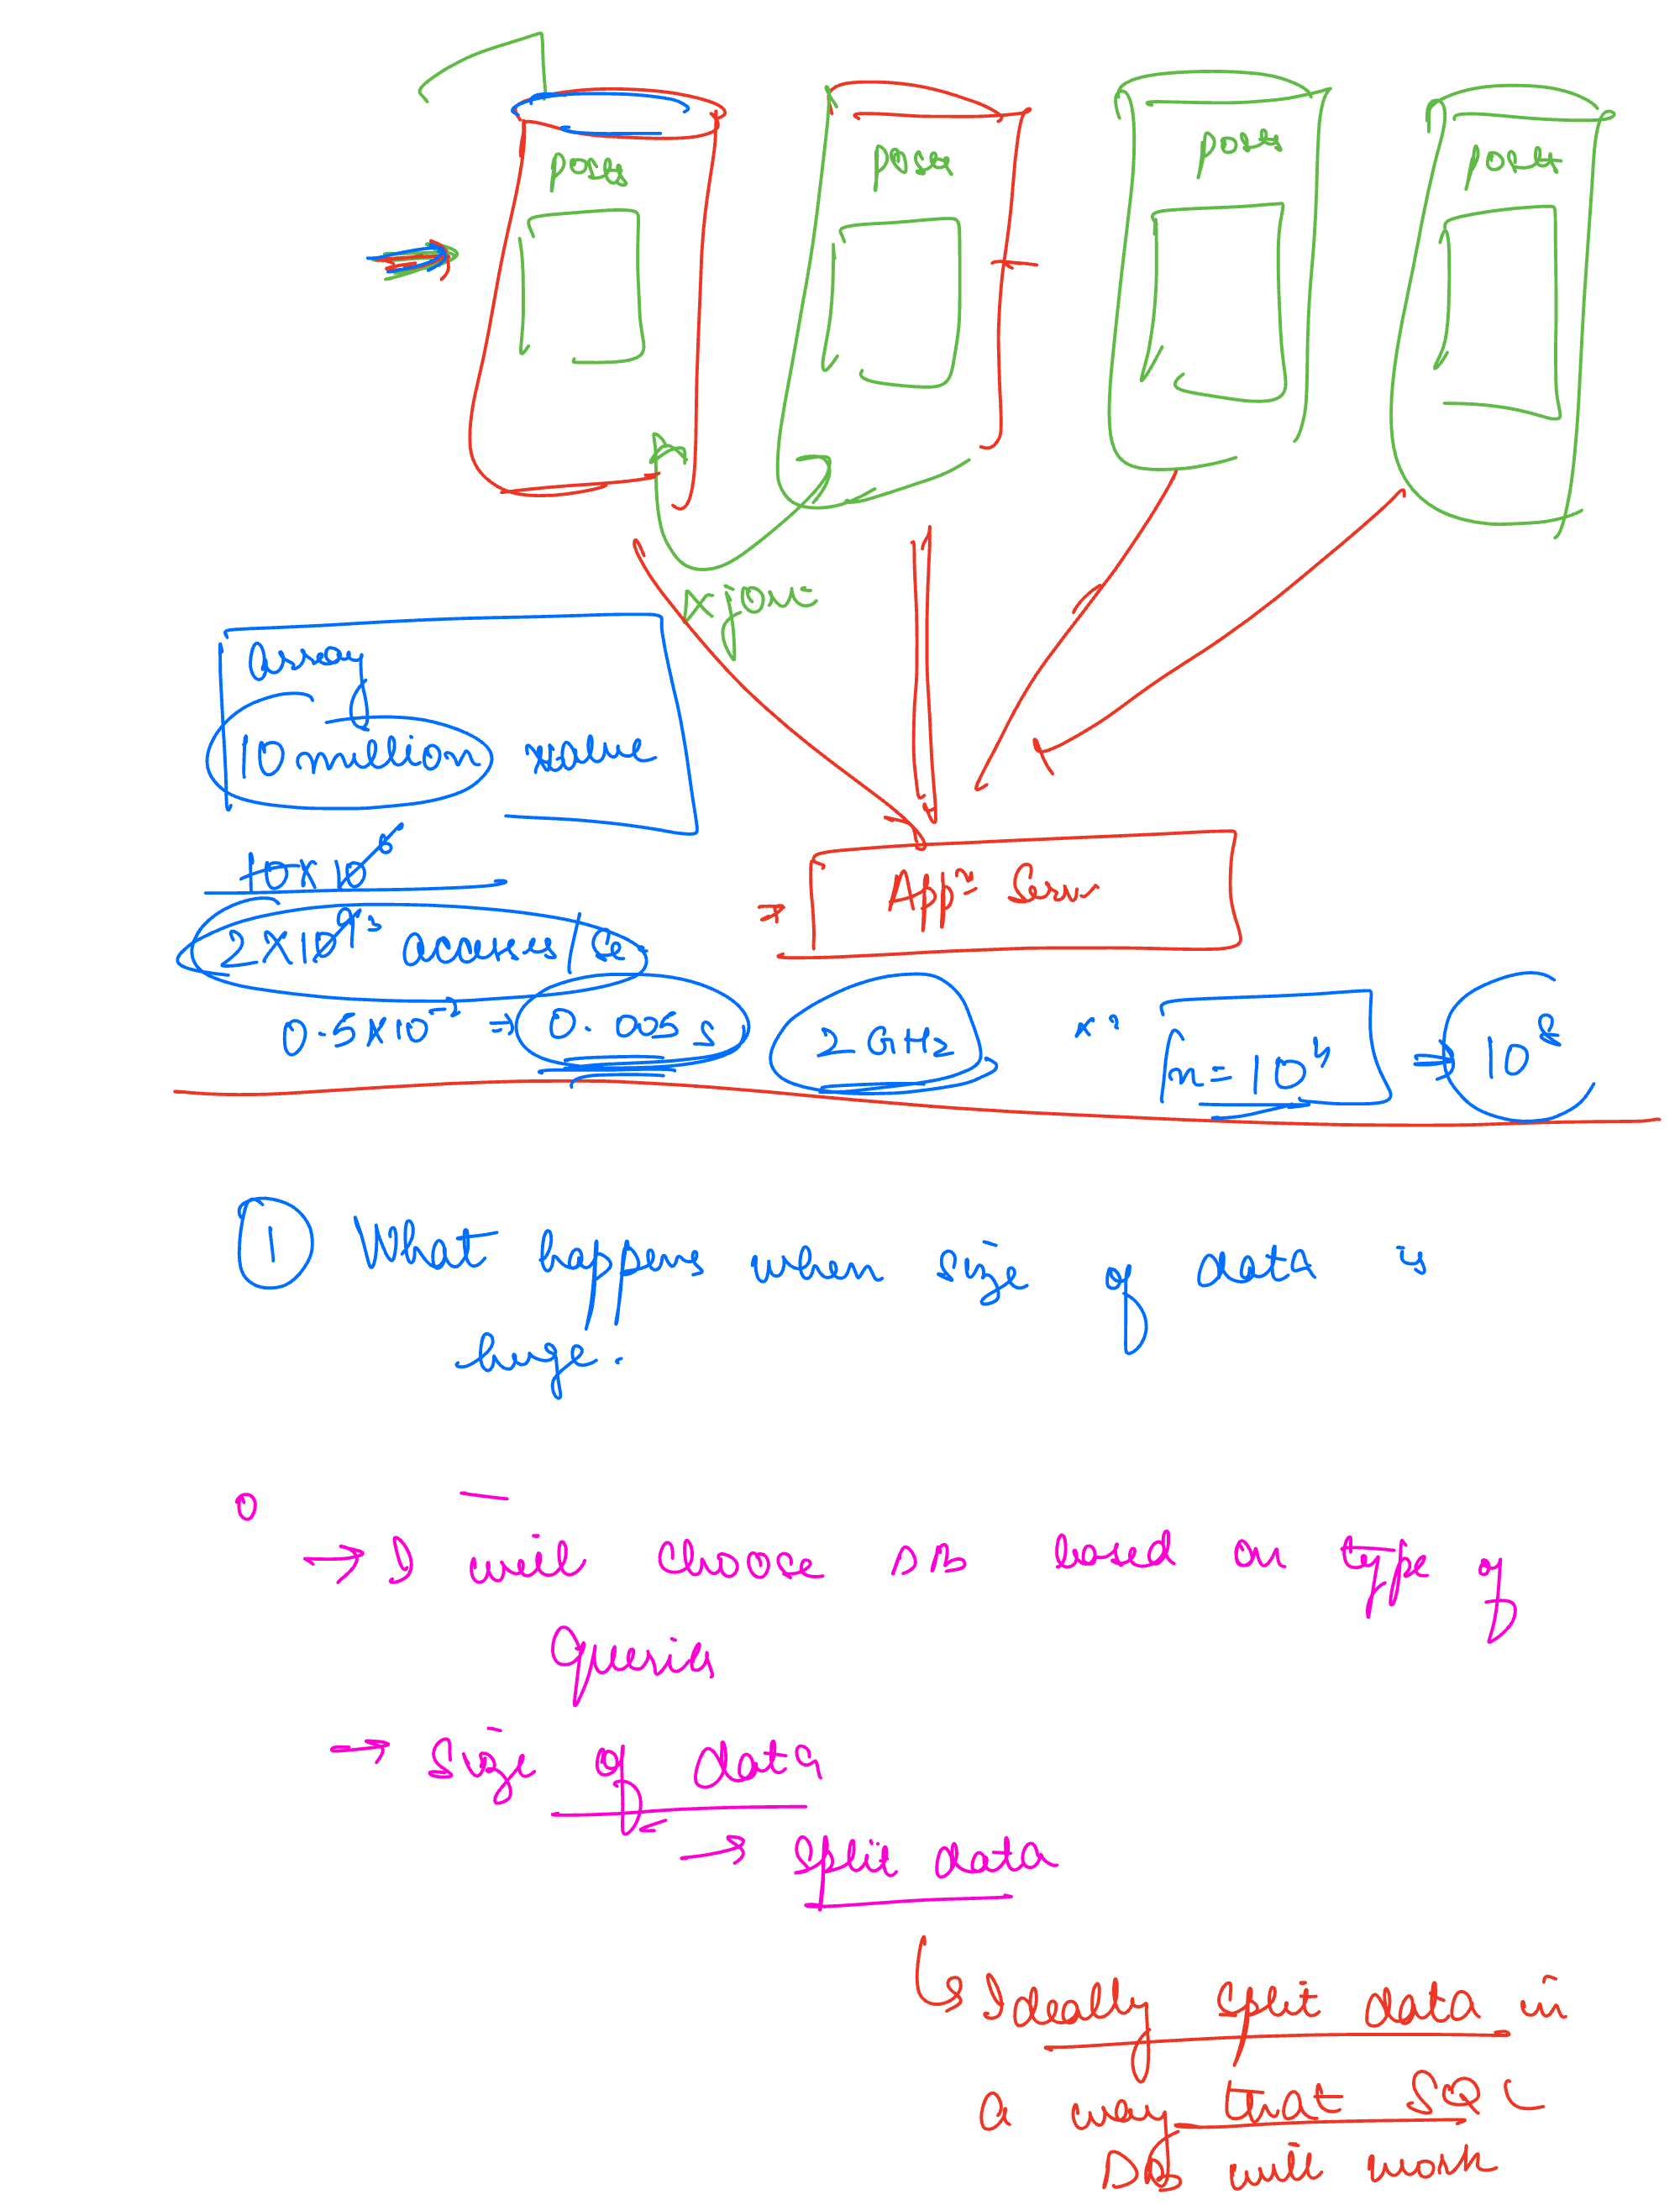 posts
posts
posts
posts
join
array
10 million value
10 × 10⁶
Appⁿ Serv
2 × 10⁹ ³ accesses / Se
0.5 × 10⁻² ⇒ 0.005 s
2 GHz
n = 10⁴ ⇒ 10⁸
① What happens when size of data is
huge.
→ I will choose DB based on type of
Queries
→ Size of data
→ Split data
↳ Ideally split data in
a way that SQL
DB will work